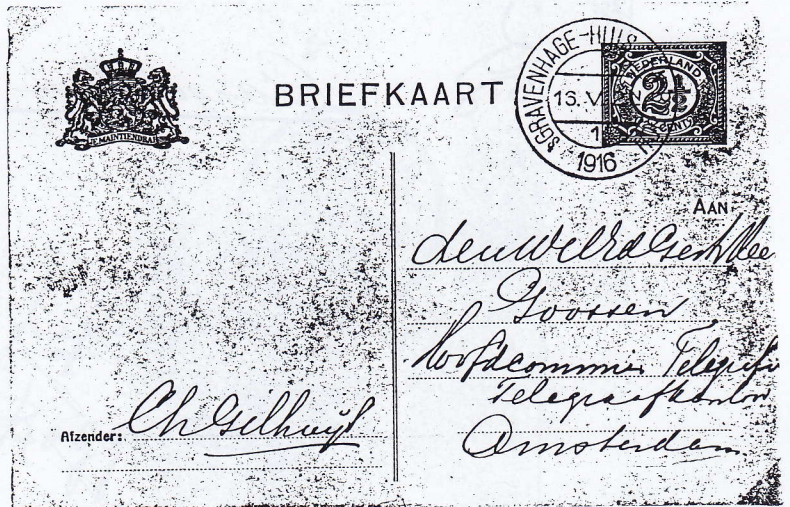 BRIEFKAART
JE MAINTIENDRAI
'SGRAVENHAGE-HUIS
13.V
1
1916
NEDERLAND
2½
CENT
AAN
den WelEd Gestr Hee
Goossen
Hoofdcommies Telegrafie
Telegraafkantoor
Amsterdam
Afzender: Ch Gilhuys